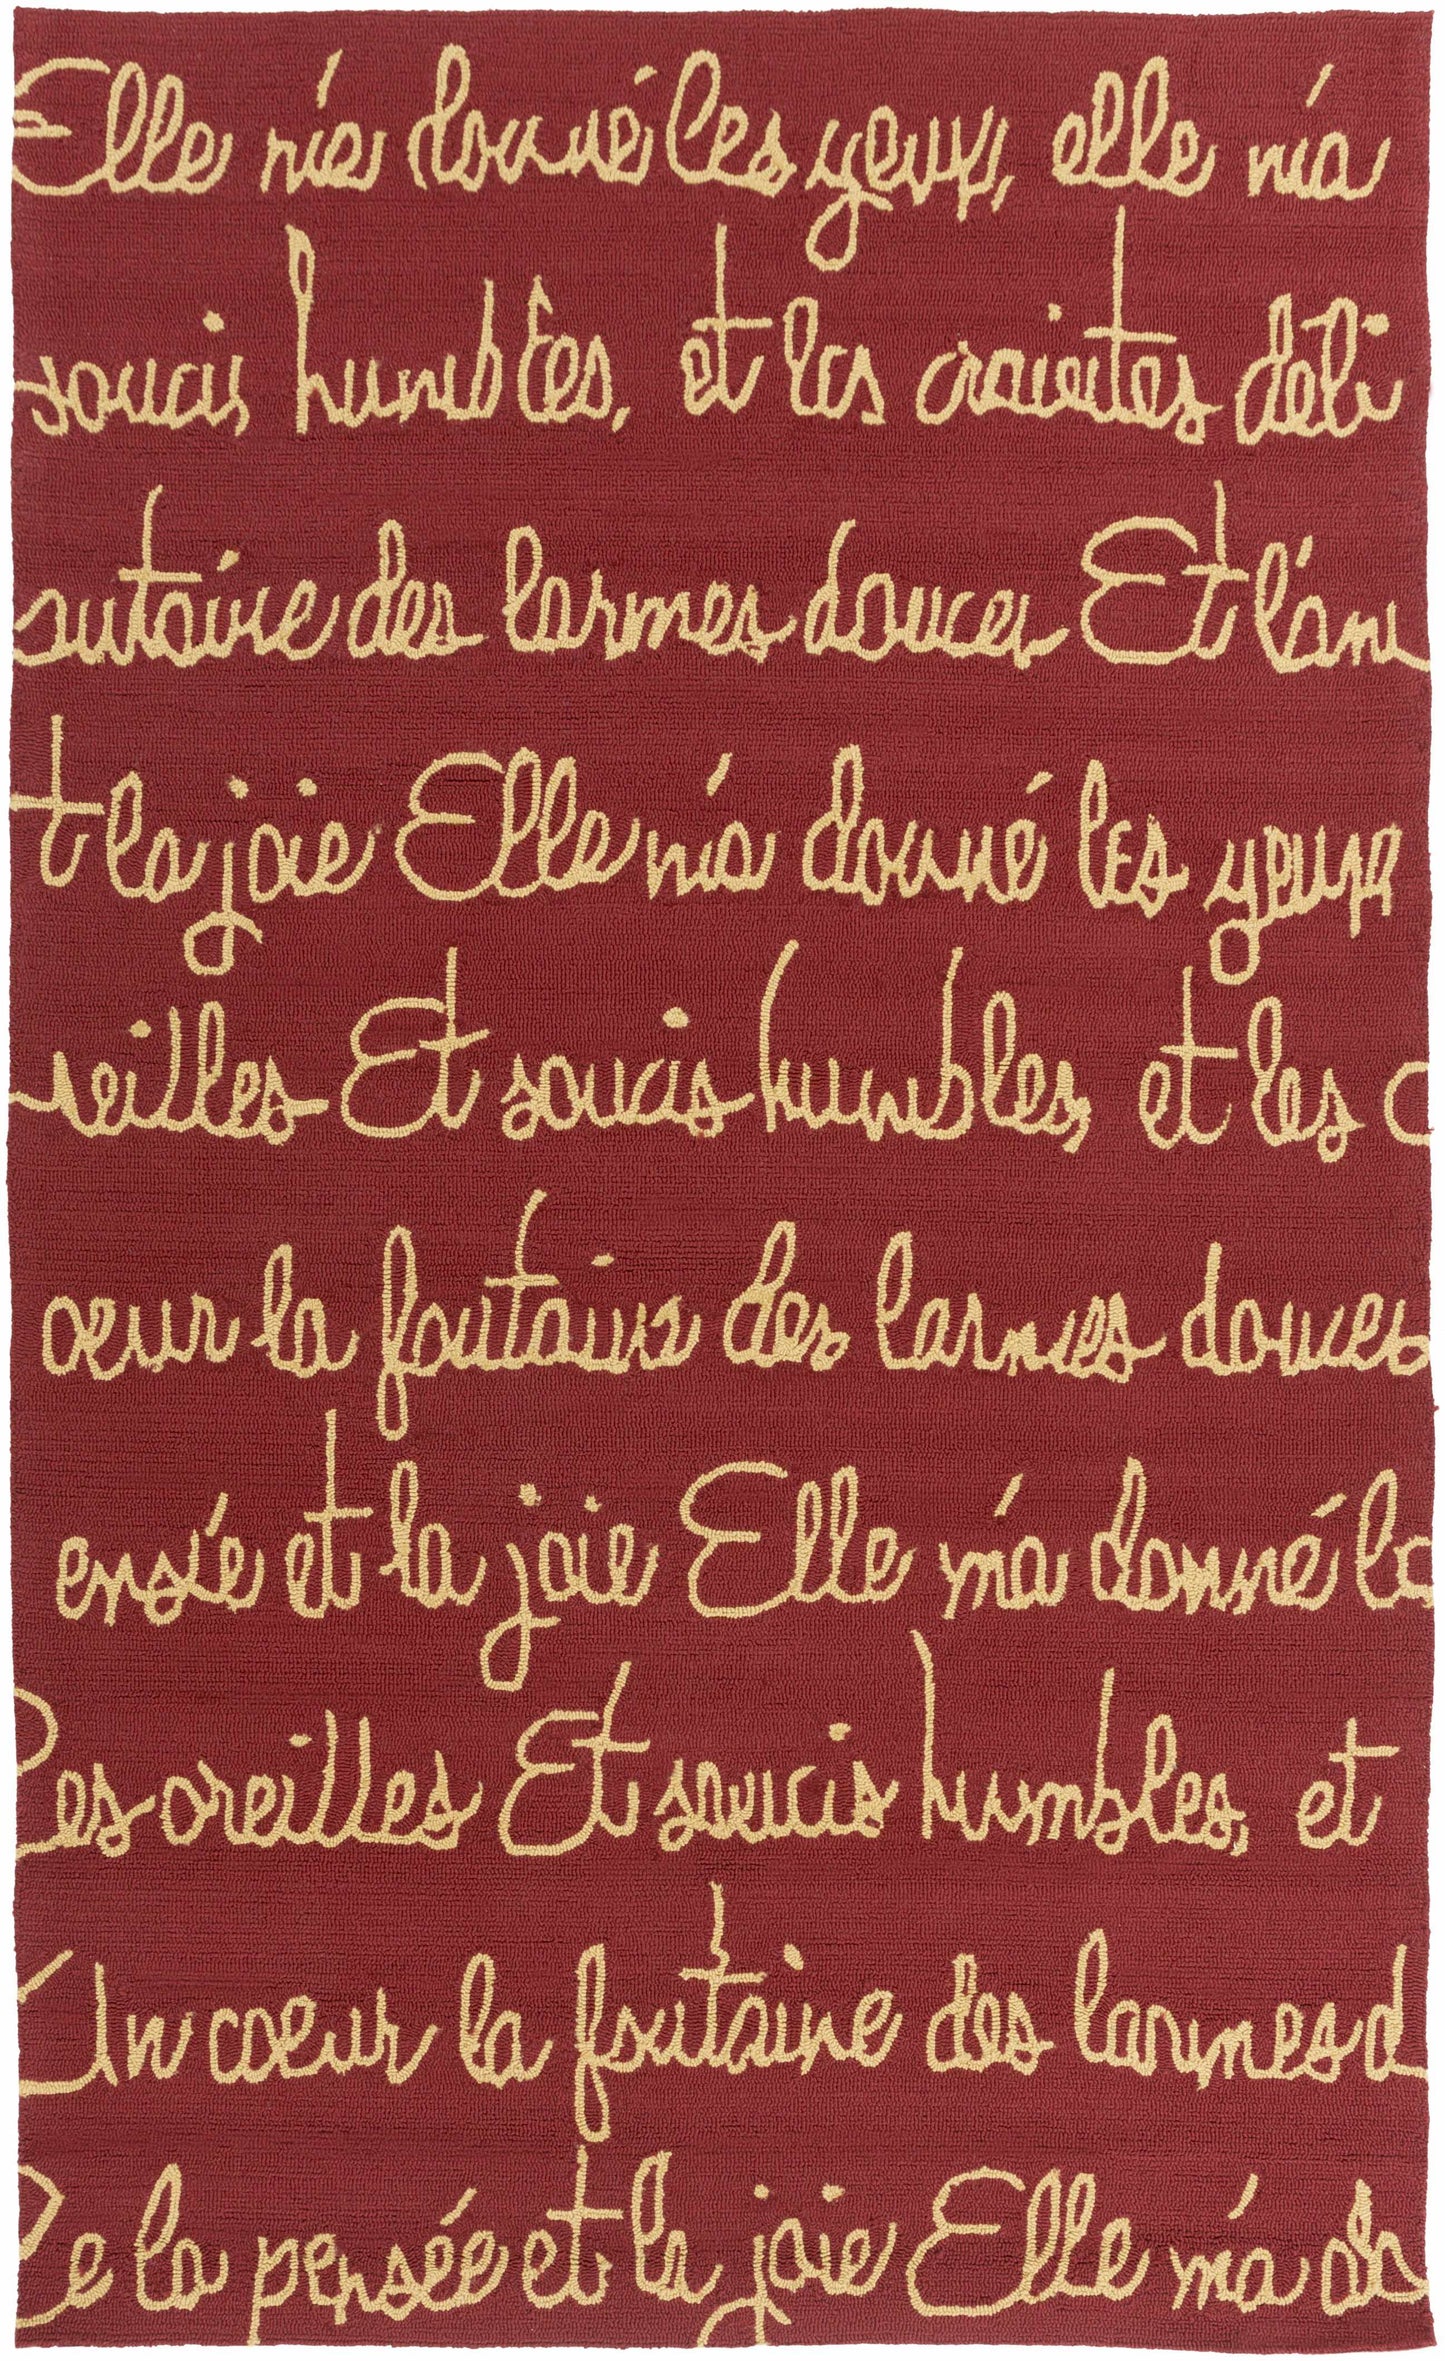 Elle m'a donné les yeux, elle m'a
soucis humbles, et les craintes déli
ntaine des larmes douces Et l'am
t la joie Elle m'a donné les yeux
reilles Et soucis humbles, et les c
œur la fontaine des larmes douces
ensée et la joie Elle m'a donné le
les oreilles Et soucis humbles, et
Un cœur la fontaine des larmes d
Le la pensée et la joie Elle m'a do